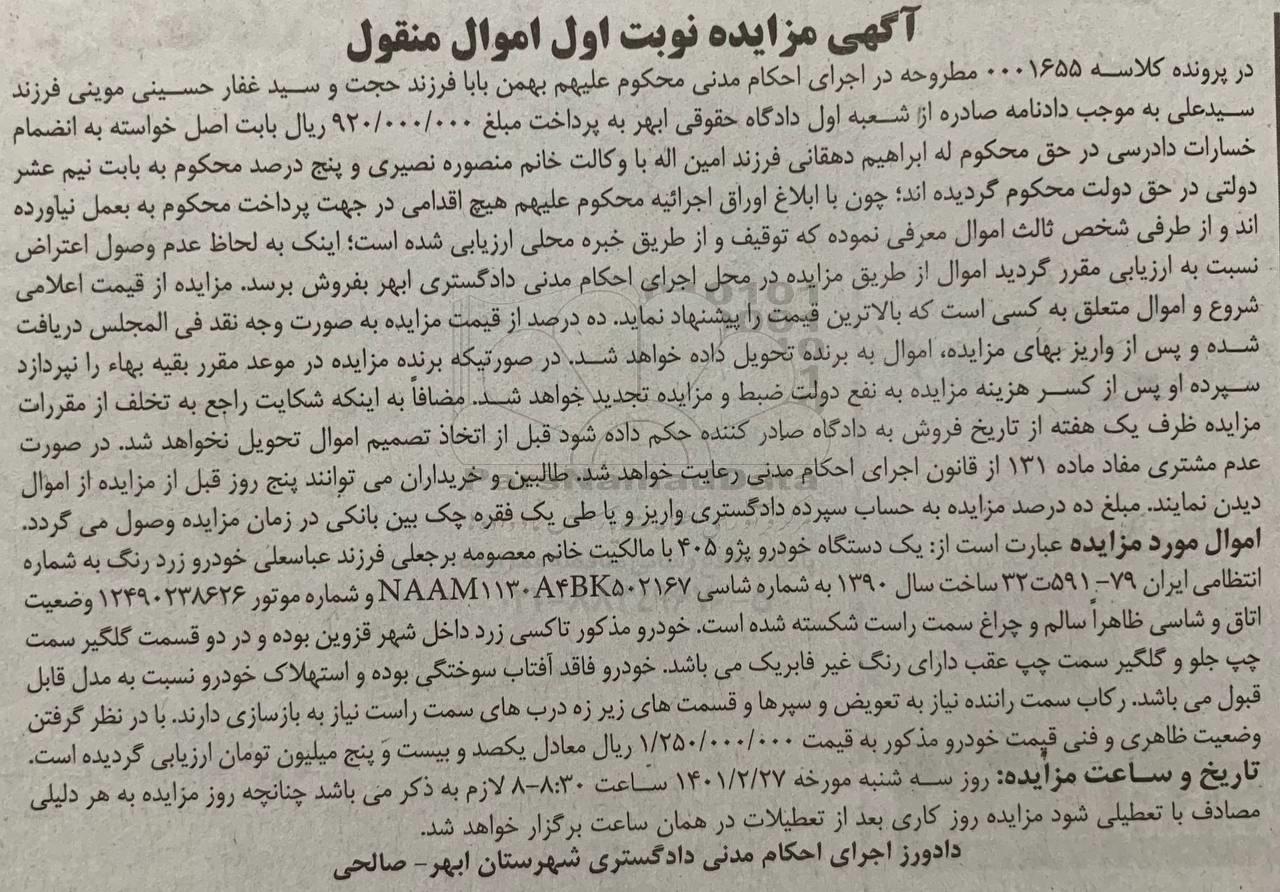 آگهی مزایده نوبت اول اموال منقول
در پرونده کلاسه ۰۰۰۱۶۵۵ مطروحه در اجرای احکام مدنی محکوم علیهم بهمن بابا فرزند حجت و سید غفار حسینی موینی فرزند
سیدعلی به موجب دادنامه صادره از شعبه اول دادگاه حقوقی ابهر به پرداخت مبلغ ۹۲۰/۰۰۰/۰۰۰ ریال بابت اصل خواسته به انضمام
خسارات دادرسی در حق محکوم له ابراهیم دهقانی فرزند امین اله با وکالت خانم منصوره نصیری و پنج درصد محکوم به بابت نیم عشر
دولتی در حق دولت محکوم گردیده اند؛ چون با ابلاغ اوراق اجرائیه محکوم علیهم هیچ اقدامی در جهت پرداخت محکوم به بعمل نیاورده
اند و از طرفی شخص ثالث اموال معرفی نموده که توقیف و از طریق خبره محلی ارزیابی شده است؛ اینک به لحاظ عدم وصول اعتراض
نسبت به ارزیابی مقرر گردید اموال از طریق مزایده در محل اجرای احکام مدنی دادگستری ابهر بفروش برسد. مزایده از قیمت اعلامی
شروع و اموال متعلق به کسی است که بالاترین قیمت را پیشنهاد نماید. ده درصد از قیمت مزایده به صورت وجه نقد فی المجلس دریافت
شده و پس از واریز بهای مزایده، اموال به برنده تحویل داده خواهد شد. در صورتیکه برنده مزایده در موعد مقرر بقیه بهاء را نپردازد
سپرده او پس از کسر هزینه مزایده به نفع دولت ضبط و مزایده تجدید خواهد شد. مضافاً به اینکه شکایت راجع به تخلف از مقررات
مزایده ظرف یک هفته از تاریخ فروش به دادگاه صادر کننده حکم داده شود قبل از اتخاذ تصمیم اموال تحویل نخواهد شد. در صورت
عدم مشتری مفاد ماده ۱۳۱ از قانون اجرای احکام مدنی رعایت خواهد شد. طالبین و خریداران می توانند پنج روز قبل از مزایده از اموال
دیدن نمایند. مبلغ ده درصد مزایده به حساب سپرده دادگستری واریز و یا طی یک فقره چک بین بانکی در زمان مزایده وصول می گردد.
اموال مورد مزایده عبارت است از: یک دستگاه خودرو پژو ۴۰۵ با مالکیت خانم معصومه برجعلی فرزند عباسعلی خودرو زرد رنگ به شماره
انتظامی ایران ۷۹- ۵۹۱ت۳۲ ساخت سال ۱۳۹۰ به شماره شاسی NAAM۱۱۳۰A۴BK۵۰۲۱۶۷ و شماره موتور ۱۲۴۹۰۲۳۸۶۲۶ وضعیت
اتاق و شاسی ظاهراً سالم و چراغ سمت راست شکسته شده است. خودرو مذکور تاکسی زرد داخل شهر قزوین بوده و در دو قسمت گلگیر سمت
چپ جلو و گلگیر سمت چپ عقب دارای رنگ غیر فابریک می باشد. خودرو فاقد آفتاب سوختگی بوده و استهلاک خودرو نسبت به مدل قابل
قبول می باشد. رکاب سمت راننده نیاز به تعویض و سپرها و قسمت های زیر زه درب های سمت راست نیاز به بازسازی دارند. با در نظر گرفتن
وضعیت ظاهری و فنی قیمت خودرو مذکور به قیمت ۱/۲۵۰/۰۰۰/۰۰۰ ریال معادل یکصد و بیست و پنج میلیون تومان ارزیابی گردیده است.
تاریخ و ساعت مزایده: روز سه شنبه مورخه ۱۴۰۱/۲/۲۷ ساعت ۸:۳۰-۸ لازم به ذکر می باشد چنانچه روز مزایده به هر دلیلی
مصادف با تعطیلی شود مزایده روز کاری بعد از تعطیلات در همان ساعت برگزار خواهد شد.
دادورز اجرای احکام مدنی دادگستری شهرستان ابهر- صالحی